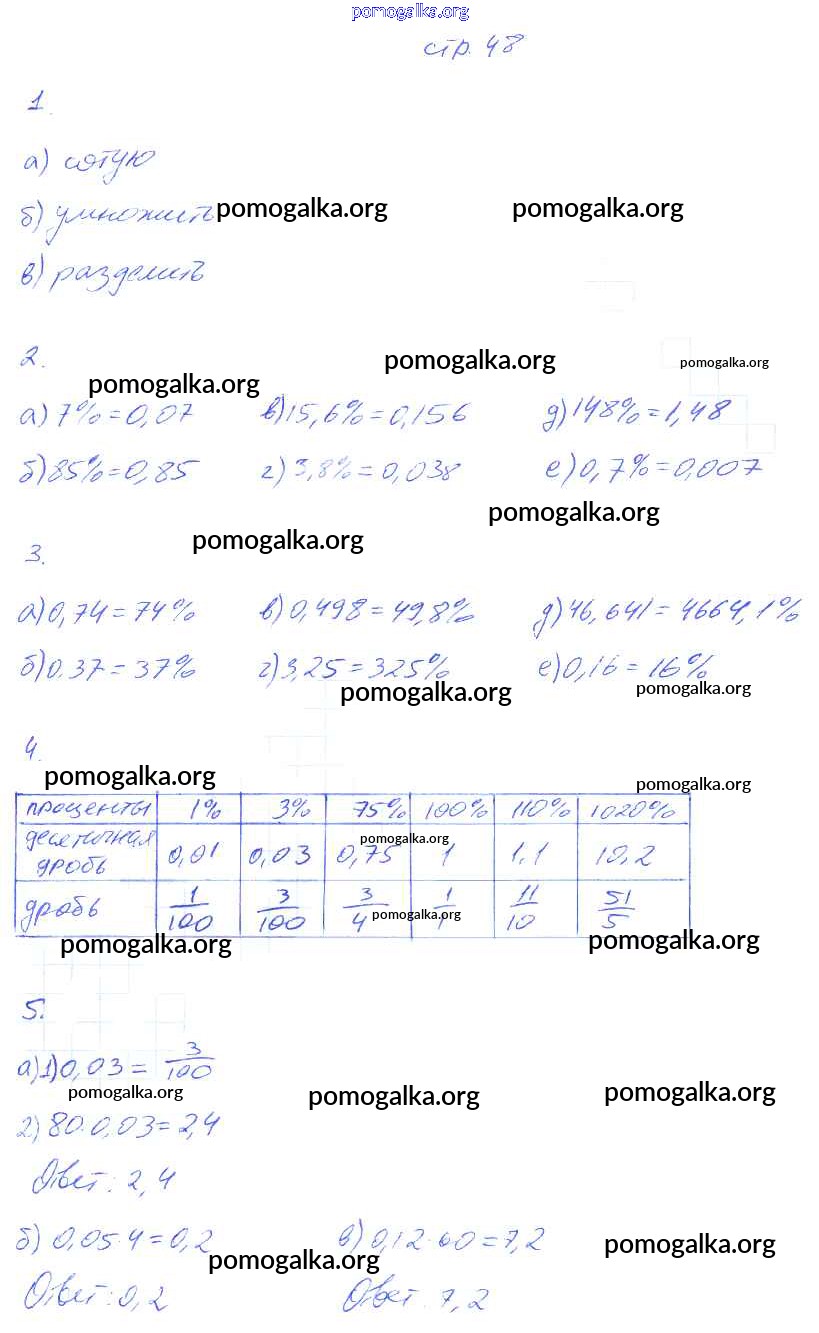 pomogalka.org
стр. 48
1.
а) сотую
б) умножить pomogalka.org pomogalka.org
в) разделить
2.
pomogalka.org pomogalka.org pomogalka.org
а) 7% = 0,07 в) 15,6% = 0,156 д) 148% = 1,48
б) 85% = 0,85 г) 3,8% = 0,038 е) 0,7% = 0,007
pomogalka.org pomogalka.org
3.
а) 0,74 = 74% в) 0,498 = 49,8% д) 46,641 = 4664,1%
б) 0,37 = 37% г) 3,25 = 325% е) 0,16 = 16%
pomogalka.org pomogalka.org
4.
pomogalka.org pomogalka.org
проценты 1% 3% 75% 100% 110% 1020%
pomogalka.org
десятичная дробь 0,01 0,03 0,75 1 1,1 10,2
дробь 1/100 3/100 3/4 1/1 11/10 51/5
pomogalka.org
pomogalka.org pomogalka.org
5.
а) 1) 0,03 = 3/100
pomogalka.org pomogalka.org pomogalka.org
2) 80·0,03 = 2,4
Ответ: 2,4
б) 0,05·4 = 0,2 в) 0,12·60 = 7,2
pomogalka.org pomogalka.org
Ответ: 0,2 Ответ: 7,2